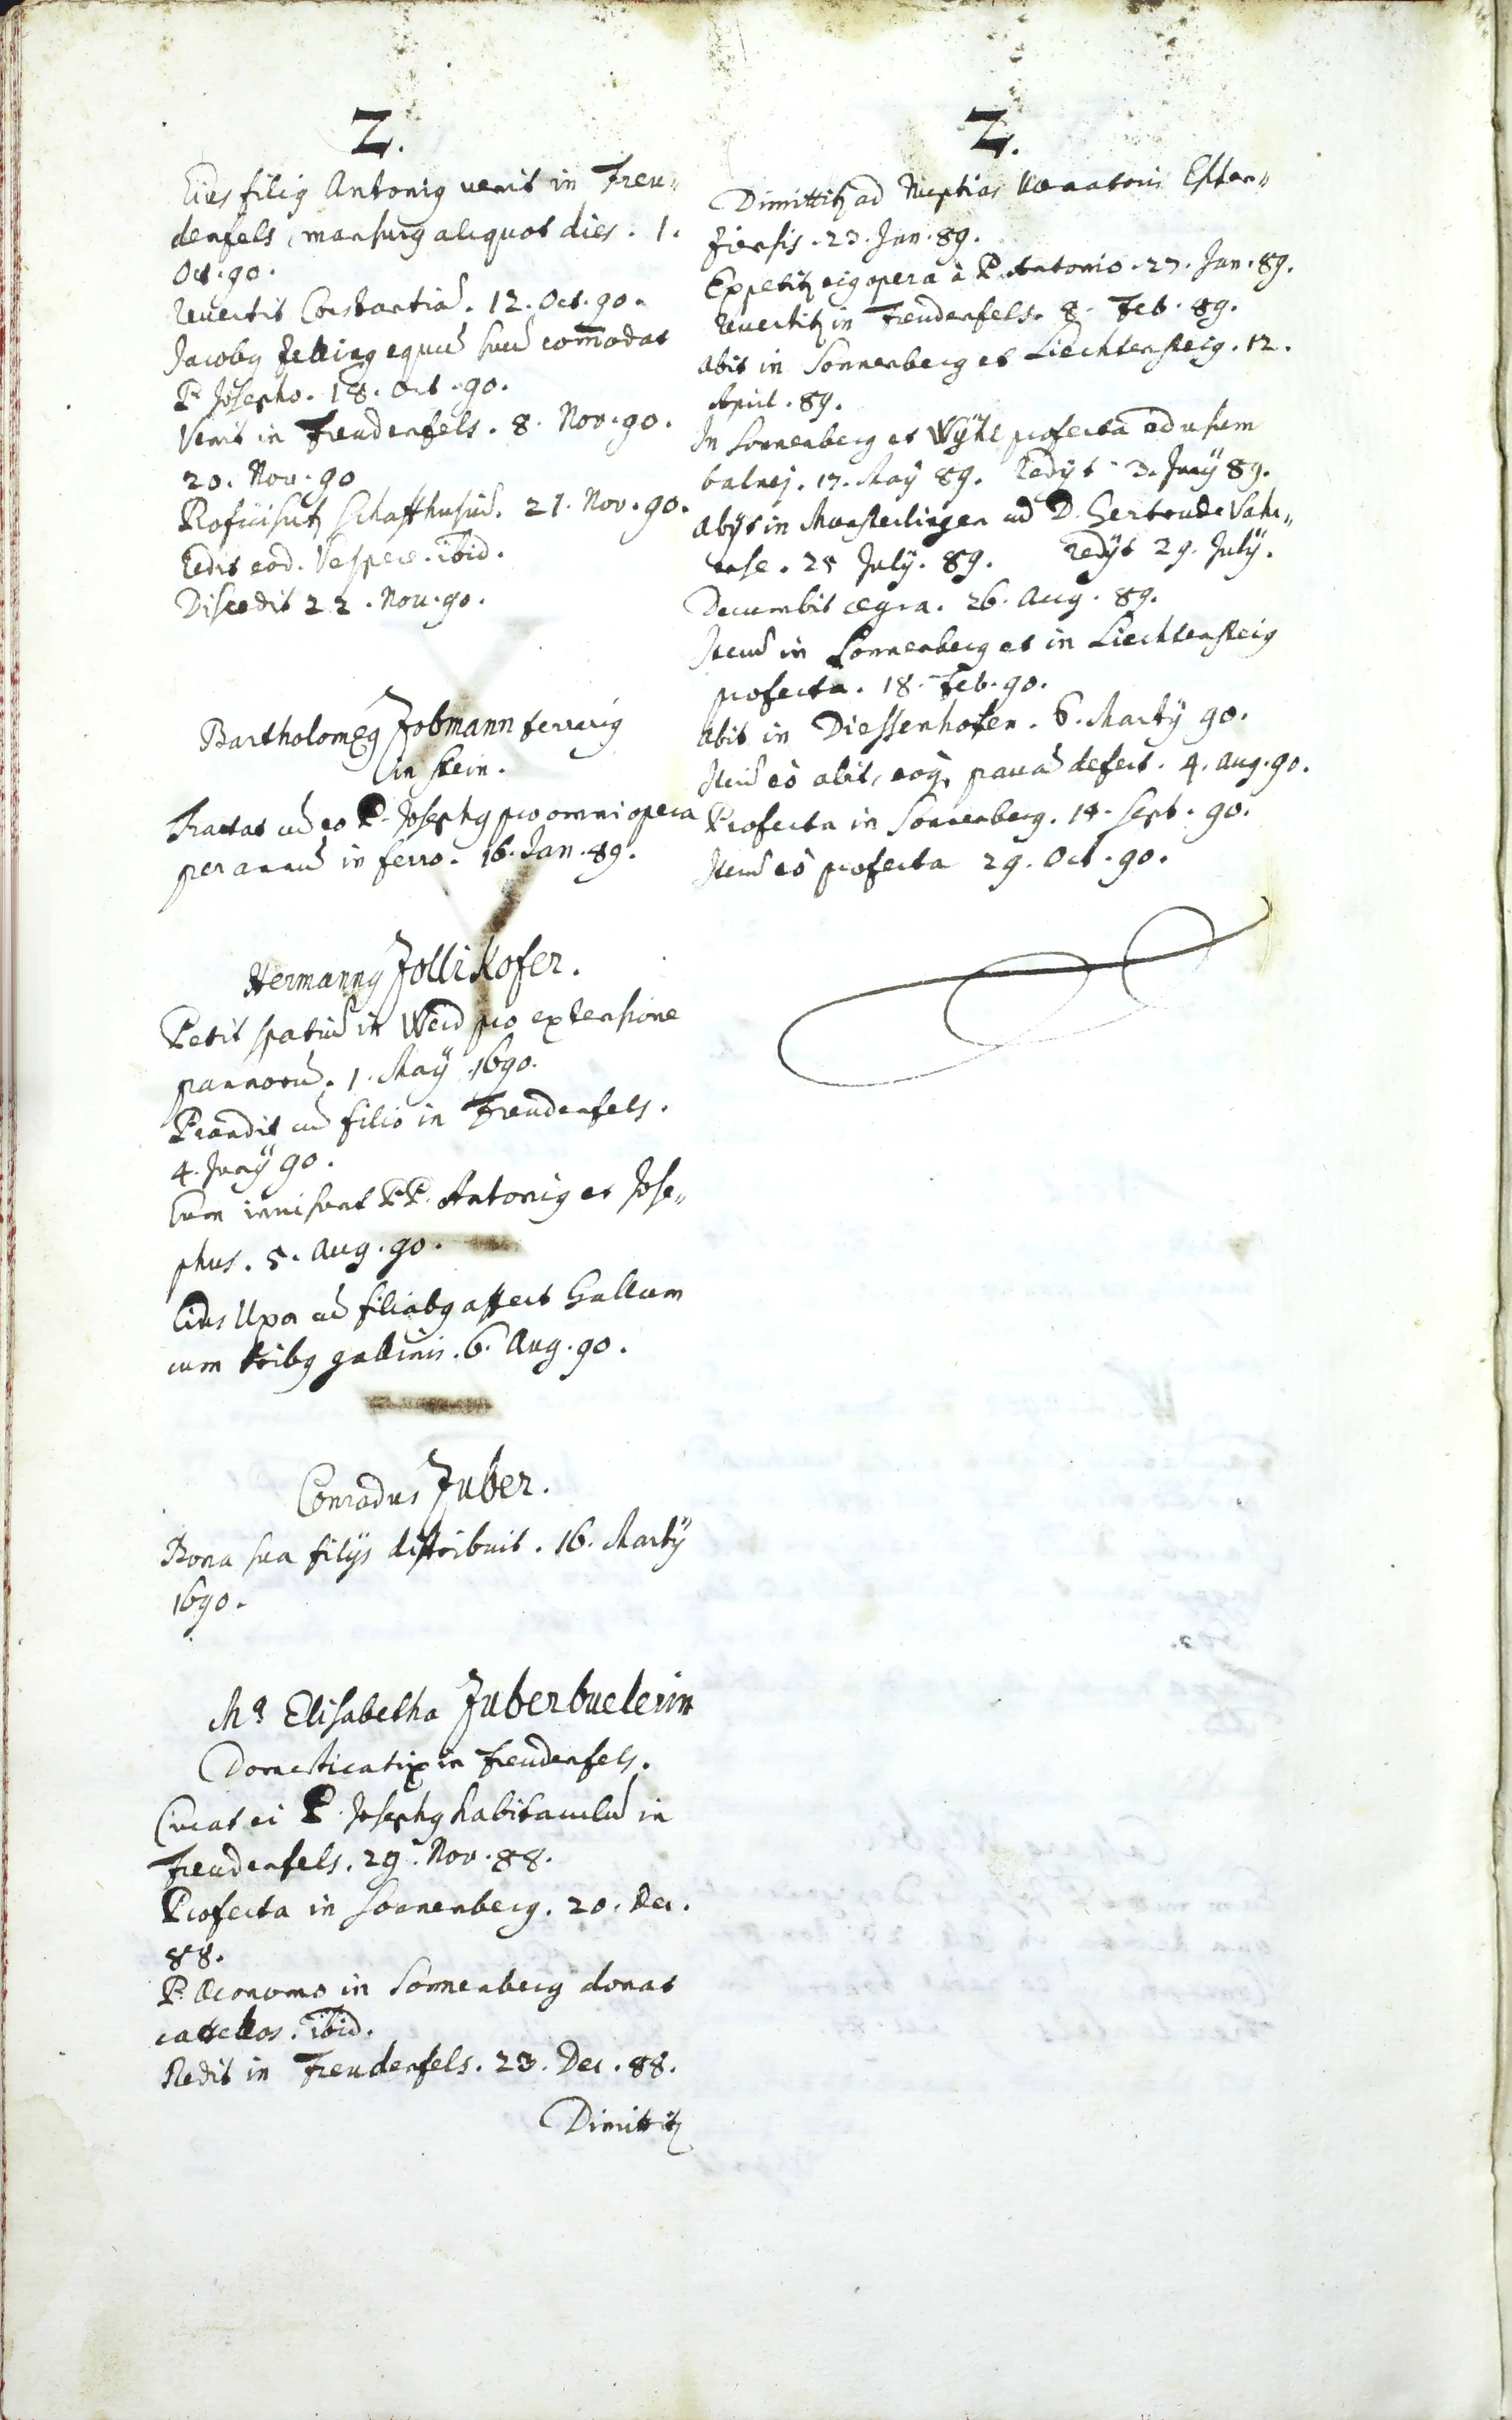 Z.
Eius filiꝰ Antoniꝰ venit in Freu„
denfels, mansurꝰ aliquot dies. 1.
Oct. 90.
Revertit Constantiā. 12. Oct. 90.
Jacobꝰ Zelliꝰ equū suū com̄odat
P. Josepho. 18. Oct. 90.
Venit in Freudenfels. 8. Nov. 90.
20. Nov. 90
Proficiscitꝛ Schaffhusiū. 21. Nov. 90.
Redit eod. Vespere. ibid.
Discedit 22. Nov. 90.
Bartholomeꝰ Zobmann ferrariꝰ
in Stein.
Tractat cū eo P. Josephꝰ pro omni opera
per annū in ferro. 16. Jan. 89.
Hermannꝰ Zollikofer.
Petit spatiū in Weid pro extensione
pannorū. 1. Maÿ 1690.
Prandit cū filio in Freudenfels.
4. Junÿ 90.
Eum invisunt PP. Antoniꝰ et Jose„
phus. 5. Aug. 90.
Eius Uxor cū filiabꝰ affert Gallum
cum tribꝰ gallinis. 6. Aug. 90.
Conradus Zuber.
Bona sua filijs distribuit. 16. Martÿ
1690.
Mᵃ Elisabetha Zuberbuelerin
Domesticatrix in Freudenfels.
Curat ei P. Josephꝰ habitaculū in
Freudenfels. 29. Nov. 88.
Profecta in Sonnenberg. 20. Dec.
88.
P. Œconomo in Sonnenberg donat
catellos. ibid.
Redit in Freudenfels. 23. Dec. 88.
Dimittitꝛ
Z.
Dimittitꝛ ad Nuptias Venatoris Eschen„
ziensis. 23. Jan. 89.
Expetitꝛ eiꝰ opera à P. Antonio. 27. Jan. 89.
Revertitꝛ in Freudenfels. 8. Feb. 89.
Abit in Sonnenberg et Liechtensteig. 12.
April. 89.
In Sonnenberg et Wÿhl profecta ad usum
balnej. 17. Maÿ 89. Redijt 3. Junÿ 89.
Abijt in Munsterlingen ad D. Gertrude
25 Julÿ. 89. Redijt 29. Julÿ.
Decumbit ægra. 26. Aug. 89.
Iterū in Sonnenberg et in Liechtensteig
profecta. 18. Feb. 90.
Abit in Diessenhofen. 6. Martÿ 90.
Iterū eò abit, eoqꝫ pavā defert. 4. Aug. 90.
Profecta in Sonnenberg. 14. Sept. 90.
Iterū eò profecta 29. Oct. 90.